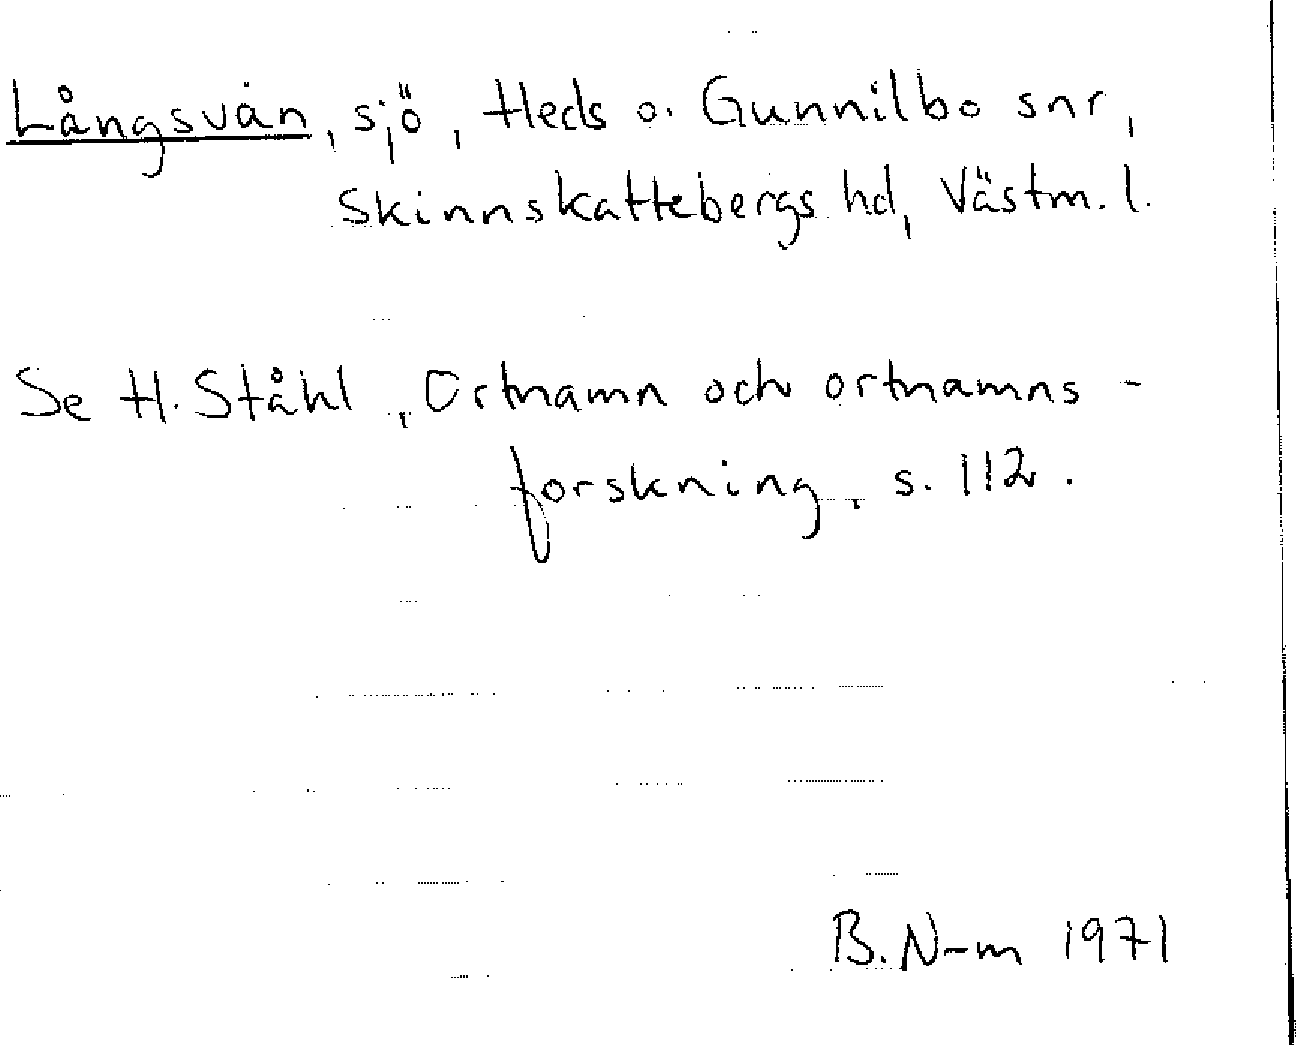 Långsvan, sjö, Heds o. Gunnilbo snr,
Skinnskattebergs hd, Västm. l.
Se H. Ståhl, Ortnamn och ortnamns-
forskning, s. 112.
B. N-m 1971